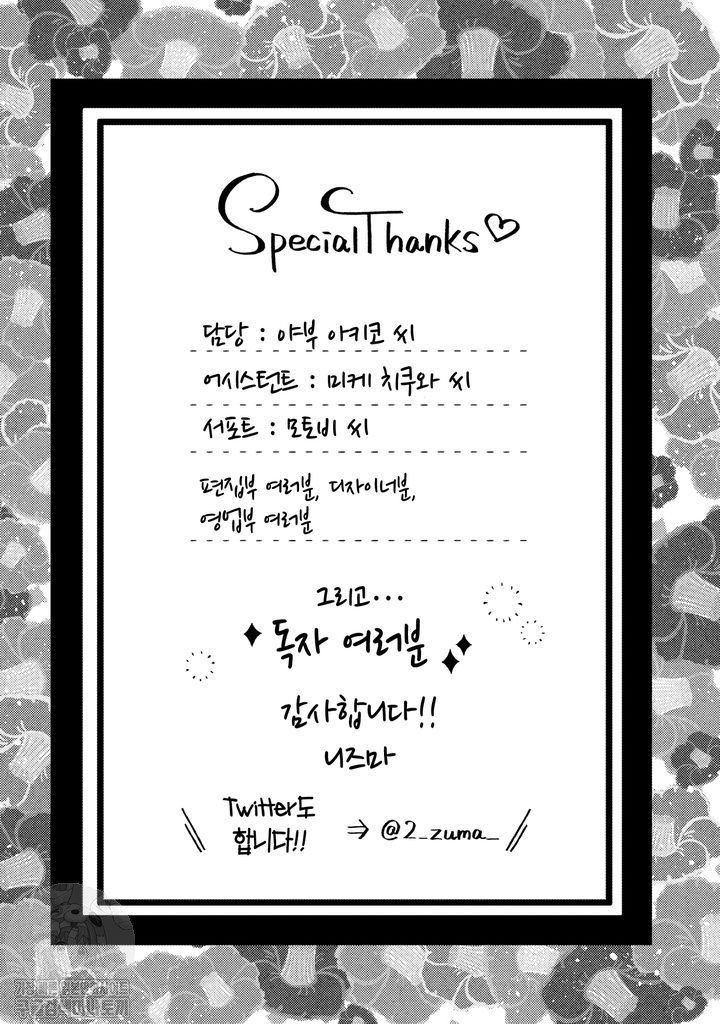 Special Thanks♡
담당 : 야부 아키코 씨
어시스턴트 : 미케 치쿠와 씨
서포트 : 모토비 씨
편집부 여러분, 디자이너분,
영업부 여러분
그리고···
독자 여러분
감사합니다!!
니즈마
Twitter도
합니다!! ⇒ @2_zuma_